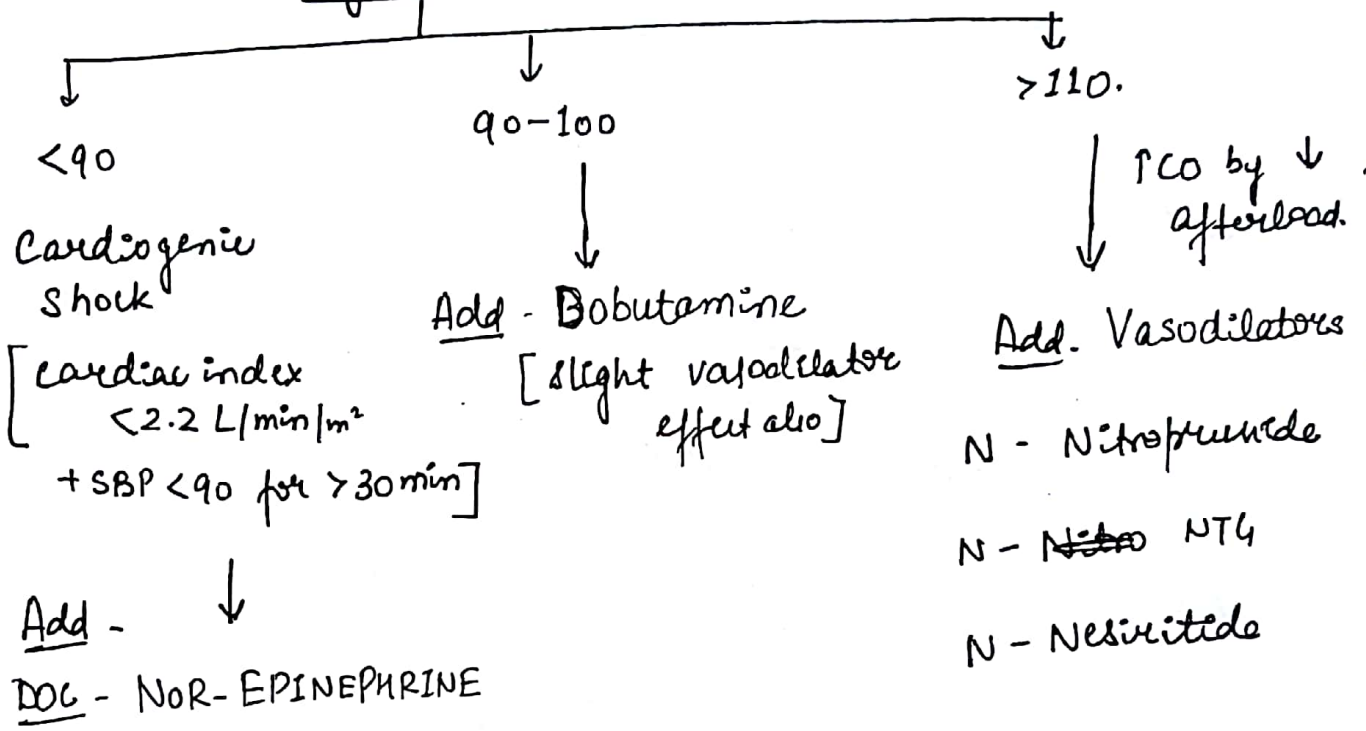 <90
Cardiogenic
shock
[cardiac index
<2.2 L/min/m²
+ SBP <90 for >30min]
Add -
DOC - NOR-EPINEPHRINE
90-100
Add - Dobutamine
[slight vasodilator
effect also]
>110.
↑CO by ↓
afterload.
Add. Vasodilators
N - Nitroprusside
N - Nitro NTG
N - Nesiritide